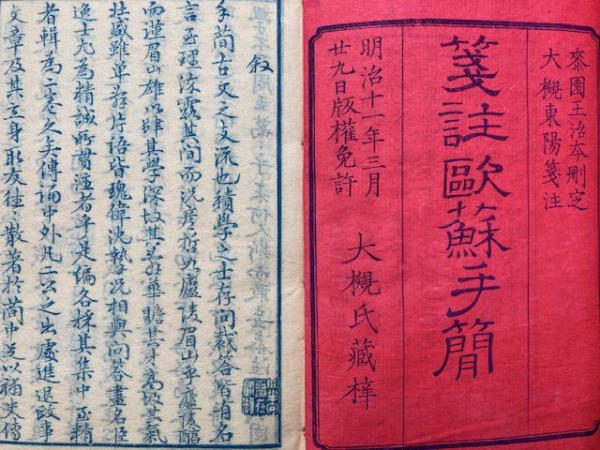 桼園王治本刪定
大槻東陽箋注
箋註歐蘇手簡
明治十一年三月
廿九日版權免許
大槻氏藏梓
敘
手簡古文之支流也積學之士存問裁答皆有名
言至理流露其間而況彥哲如廬陵眉山乎廬陵醇
而謹眉山雄以肆其學深故其華贍其才高故其氣
壯盛雖單辭片語皆瑰偉沈摯況相與問答盡名臣
逸士尤為精誠所貫注者乎是編各採其集中至精
者輯為久矣傳誦中外凡二公之出處進退政事
文章及其立身取友往往散著於簡中足以補史傳